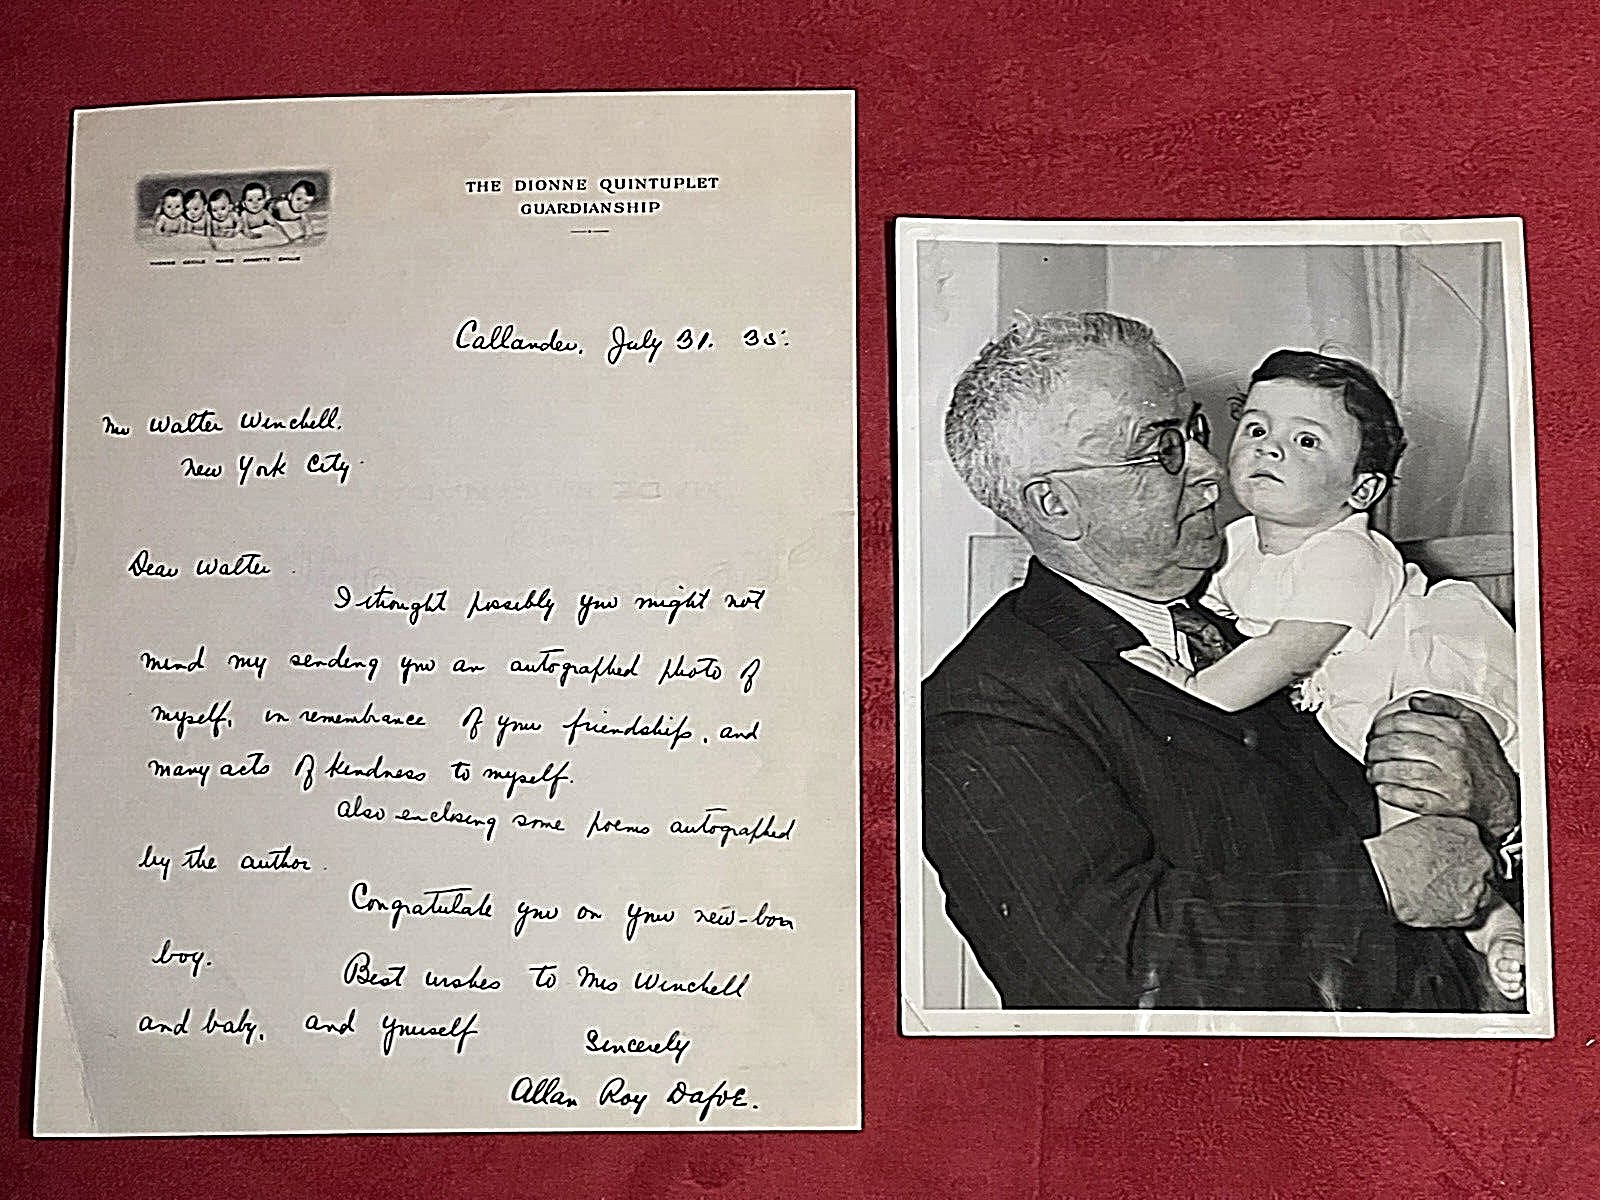 THE DIONNE QUINTUPLET
GUARDIANSHIP
YVONNE CECILE MARIE ANNETTE EMILIE
Callander, July 31. 35.
Mr Walter Winchell.
New York City.
Dear Walter
I thought possibly you might not
mind my sending you an autographed photo of
myself, in remembrance of your friendship, and
many acts of kindness to myself.
Also enclosing some poems autographed
by the author.
Congratulate you on your new-born
boy.
Best wishes to Mrs Winchell
and baby, and yourself
Sincerely
Allan Roy Dafoe.